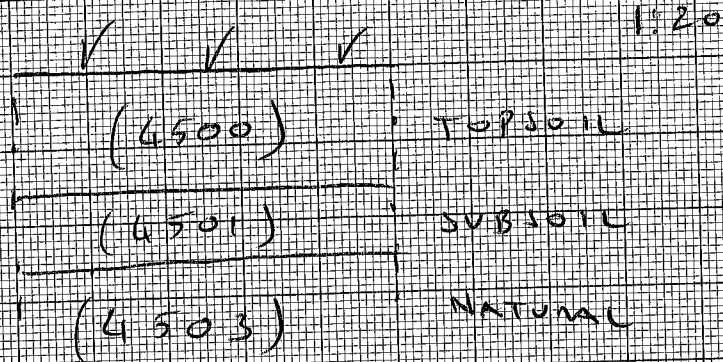 1:20
(4500) TOPSOIL
(4501) SUBSOIL
(4503) NATURAL